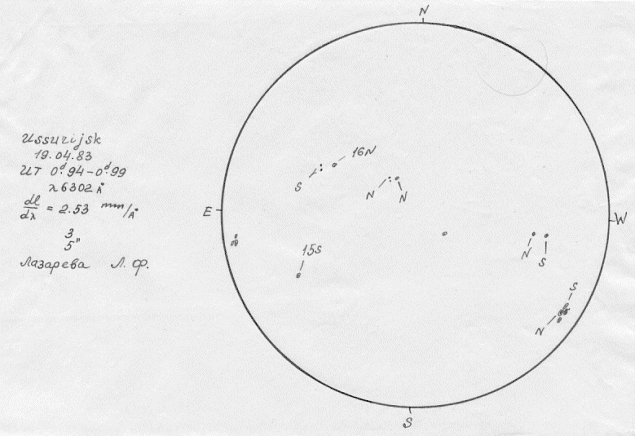 N
Ussurijsk
19.04.83
UT 0ᵈ.94-0ᵈ.99
λ6302 Å
dl/dλ = 2.53 mm/Å
3
5"
Лазарева Л. Ф.
16N
S
N
N
E
W
15S
N
S
S
N
S